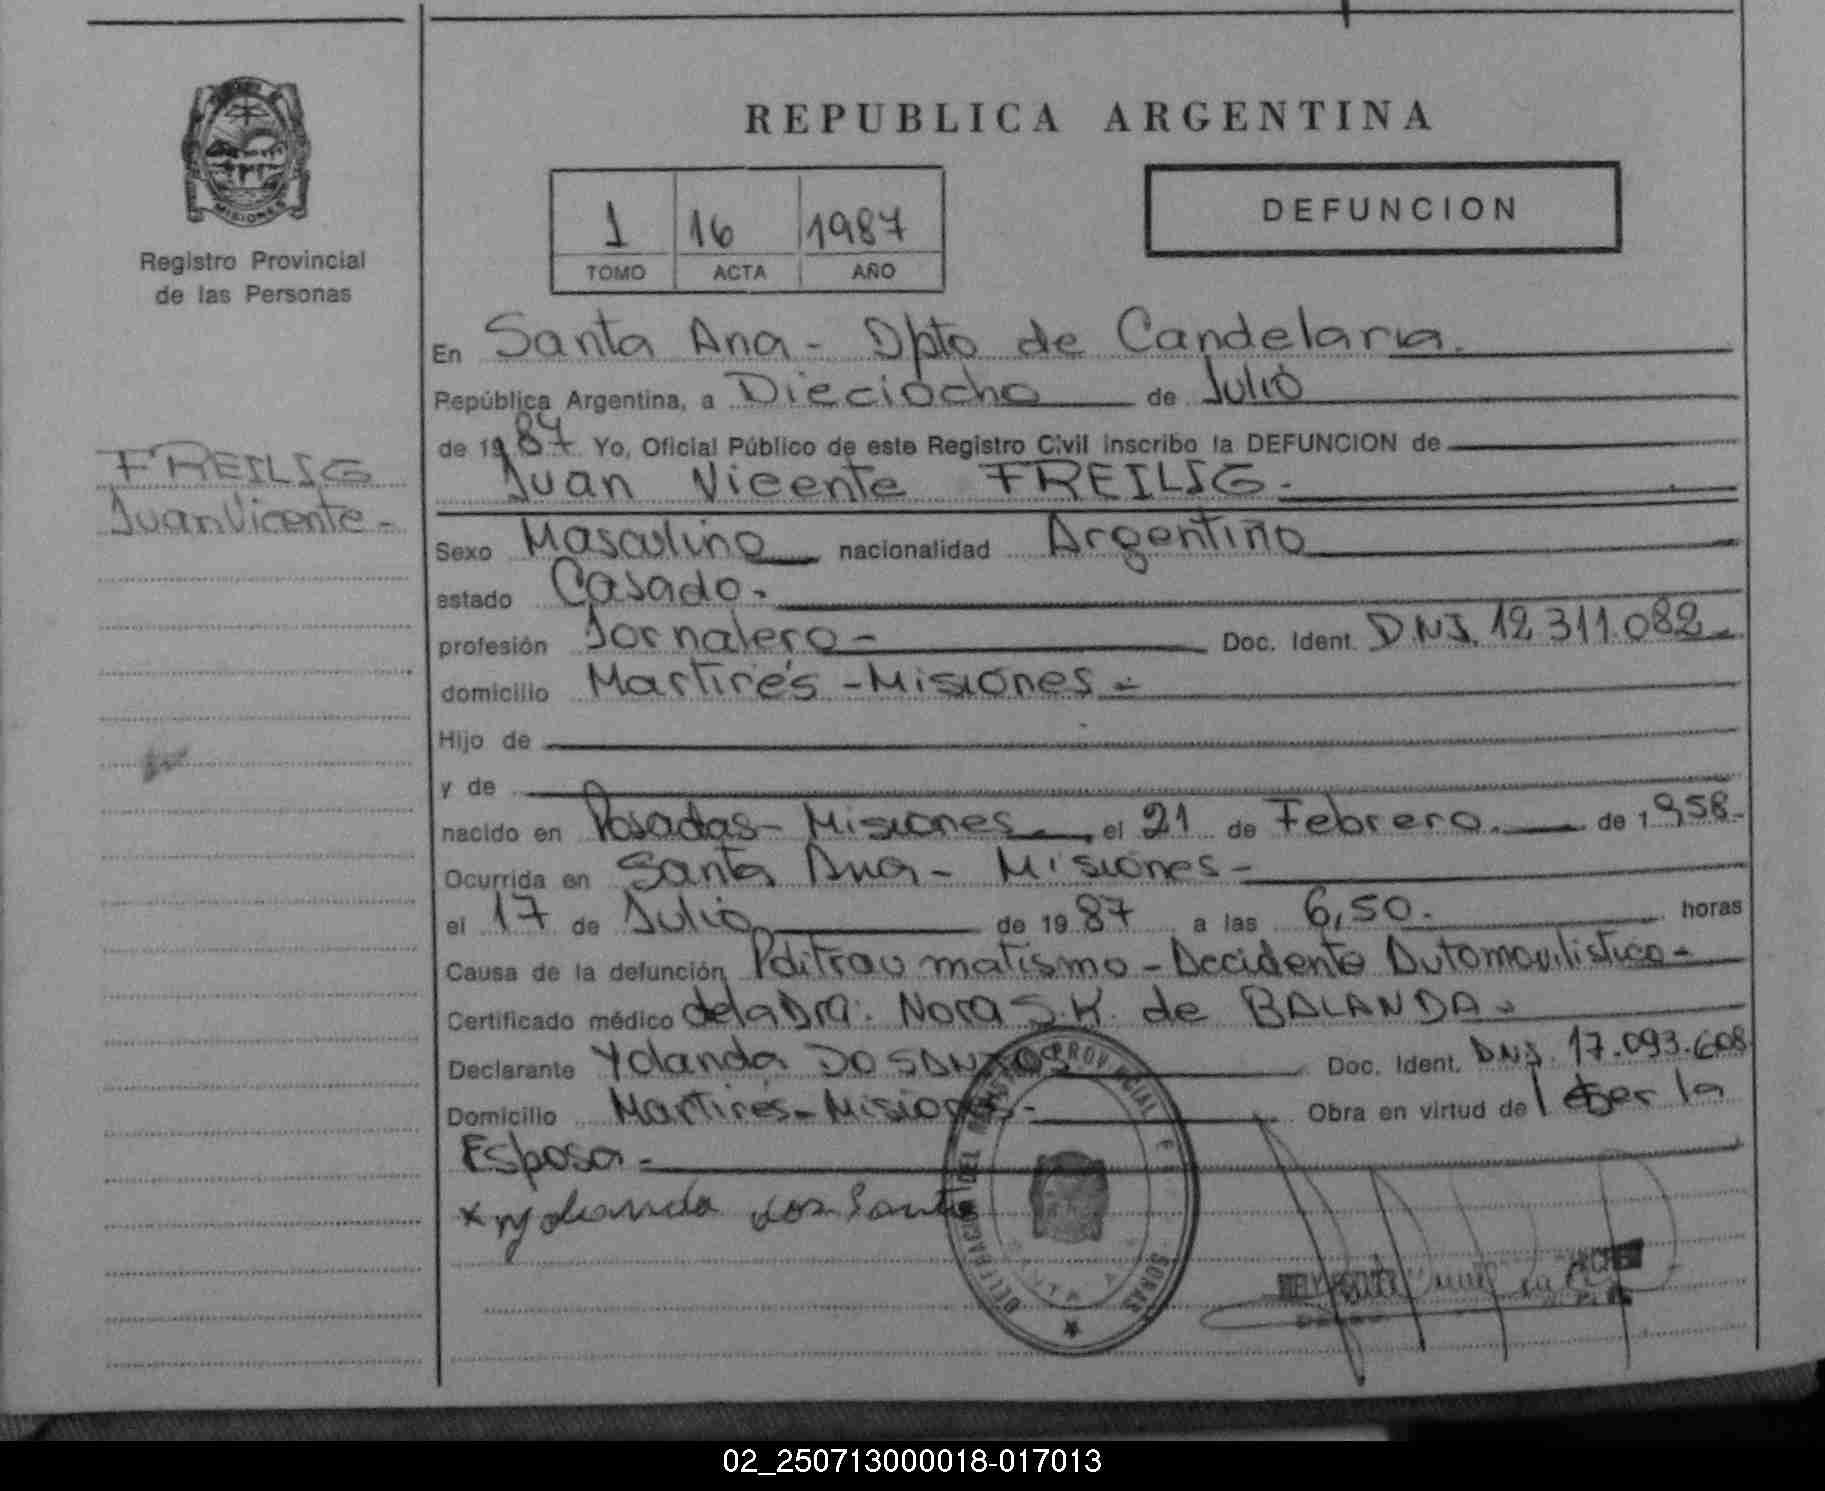 REPUBLICA ARGENTINA
MISIONES
Registro Provincial
de las Personas
1 16 1987
TOMO ACTA AÑO
DEFUNCION
FREILIG
Juan Vicente -
En Santa Ana - Dpto de Candelaria.
República Argentina, a Dieciocho de Julio
de 1987 Yo, Oficial Público de este Registro Civil inscribo la DEFUNCION de
Juan Vicente FREILIG.
Sexo Masculino nacionalidad Argentino
estado Casado.
profesión Jornalero - Doc. Ident. DNI. 12 311.082
domicilio Martires - Misiones -
Hijo de
y de
nacido en Posadas - Misiones el 21 de Febrero. de 1958-
Ocurrida en Santa Ana - Misiones -
el 17 de Julio de 1987 a las 6,50. horas
Causa de la defunción Politraumatismo - Accidente Automovilistico -
Certificado médico de la Dra. Nora S.K. de BALANDA.
Declarante Yolanda DO SANTOS Doc. Ident. DNI. 17.093.608
Domicilio Martires - Misiones - Obra en virtud de ser la
Esposa -
x yolanda dos Santo
02_250713000018-017013